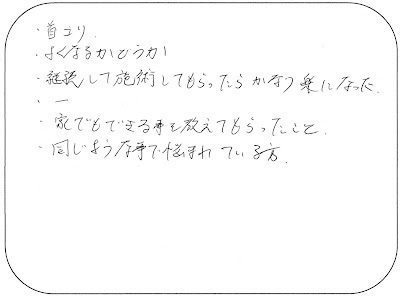 ・首コリ.
・よくなるかどうか
・継続して施術してもらったらかなり楽になった.
・ー
・家でもできる事を教えてもらったこと.
・同じような事で悩まれている方.